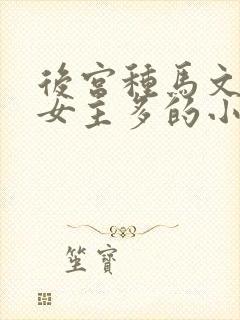 後宮種馬文
女主多的小
笙寶